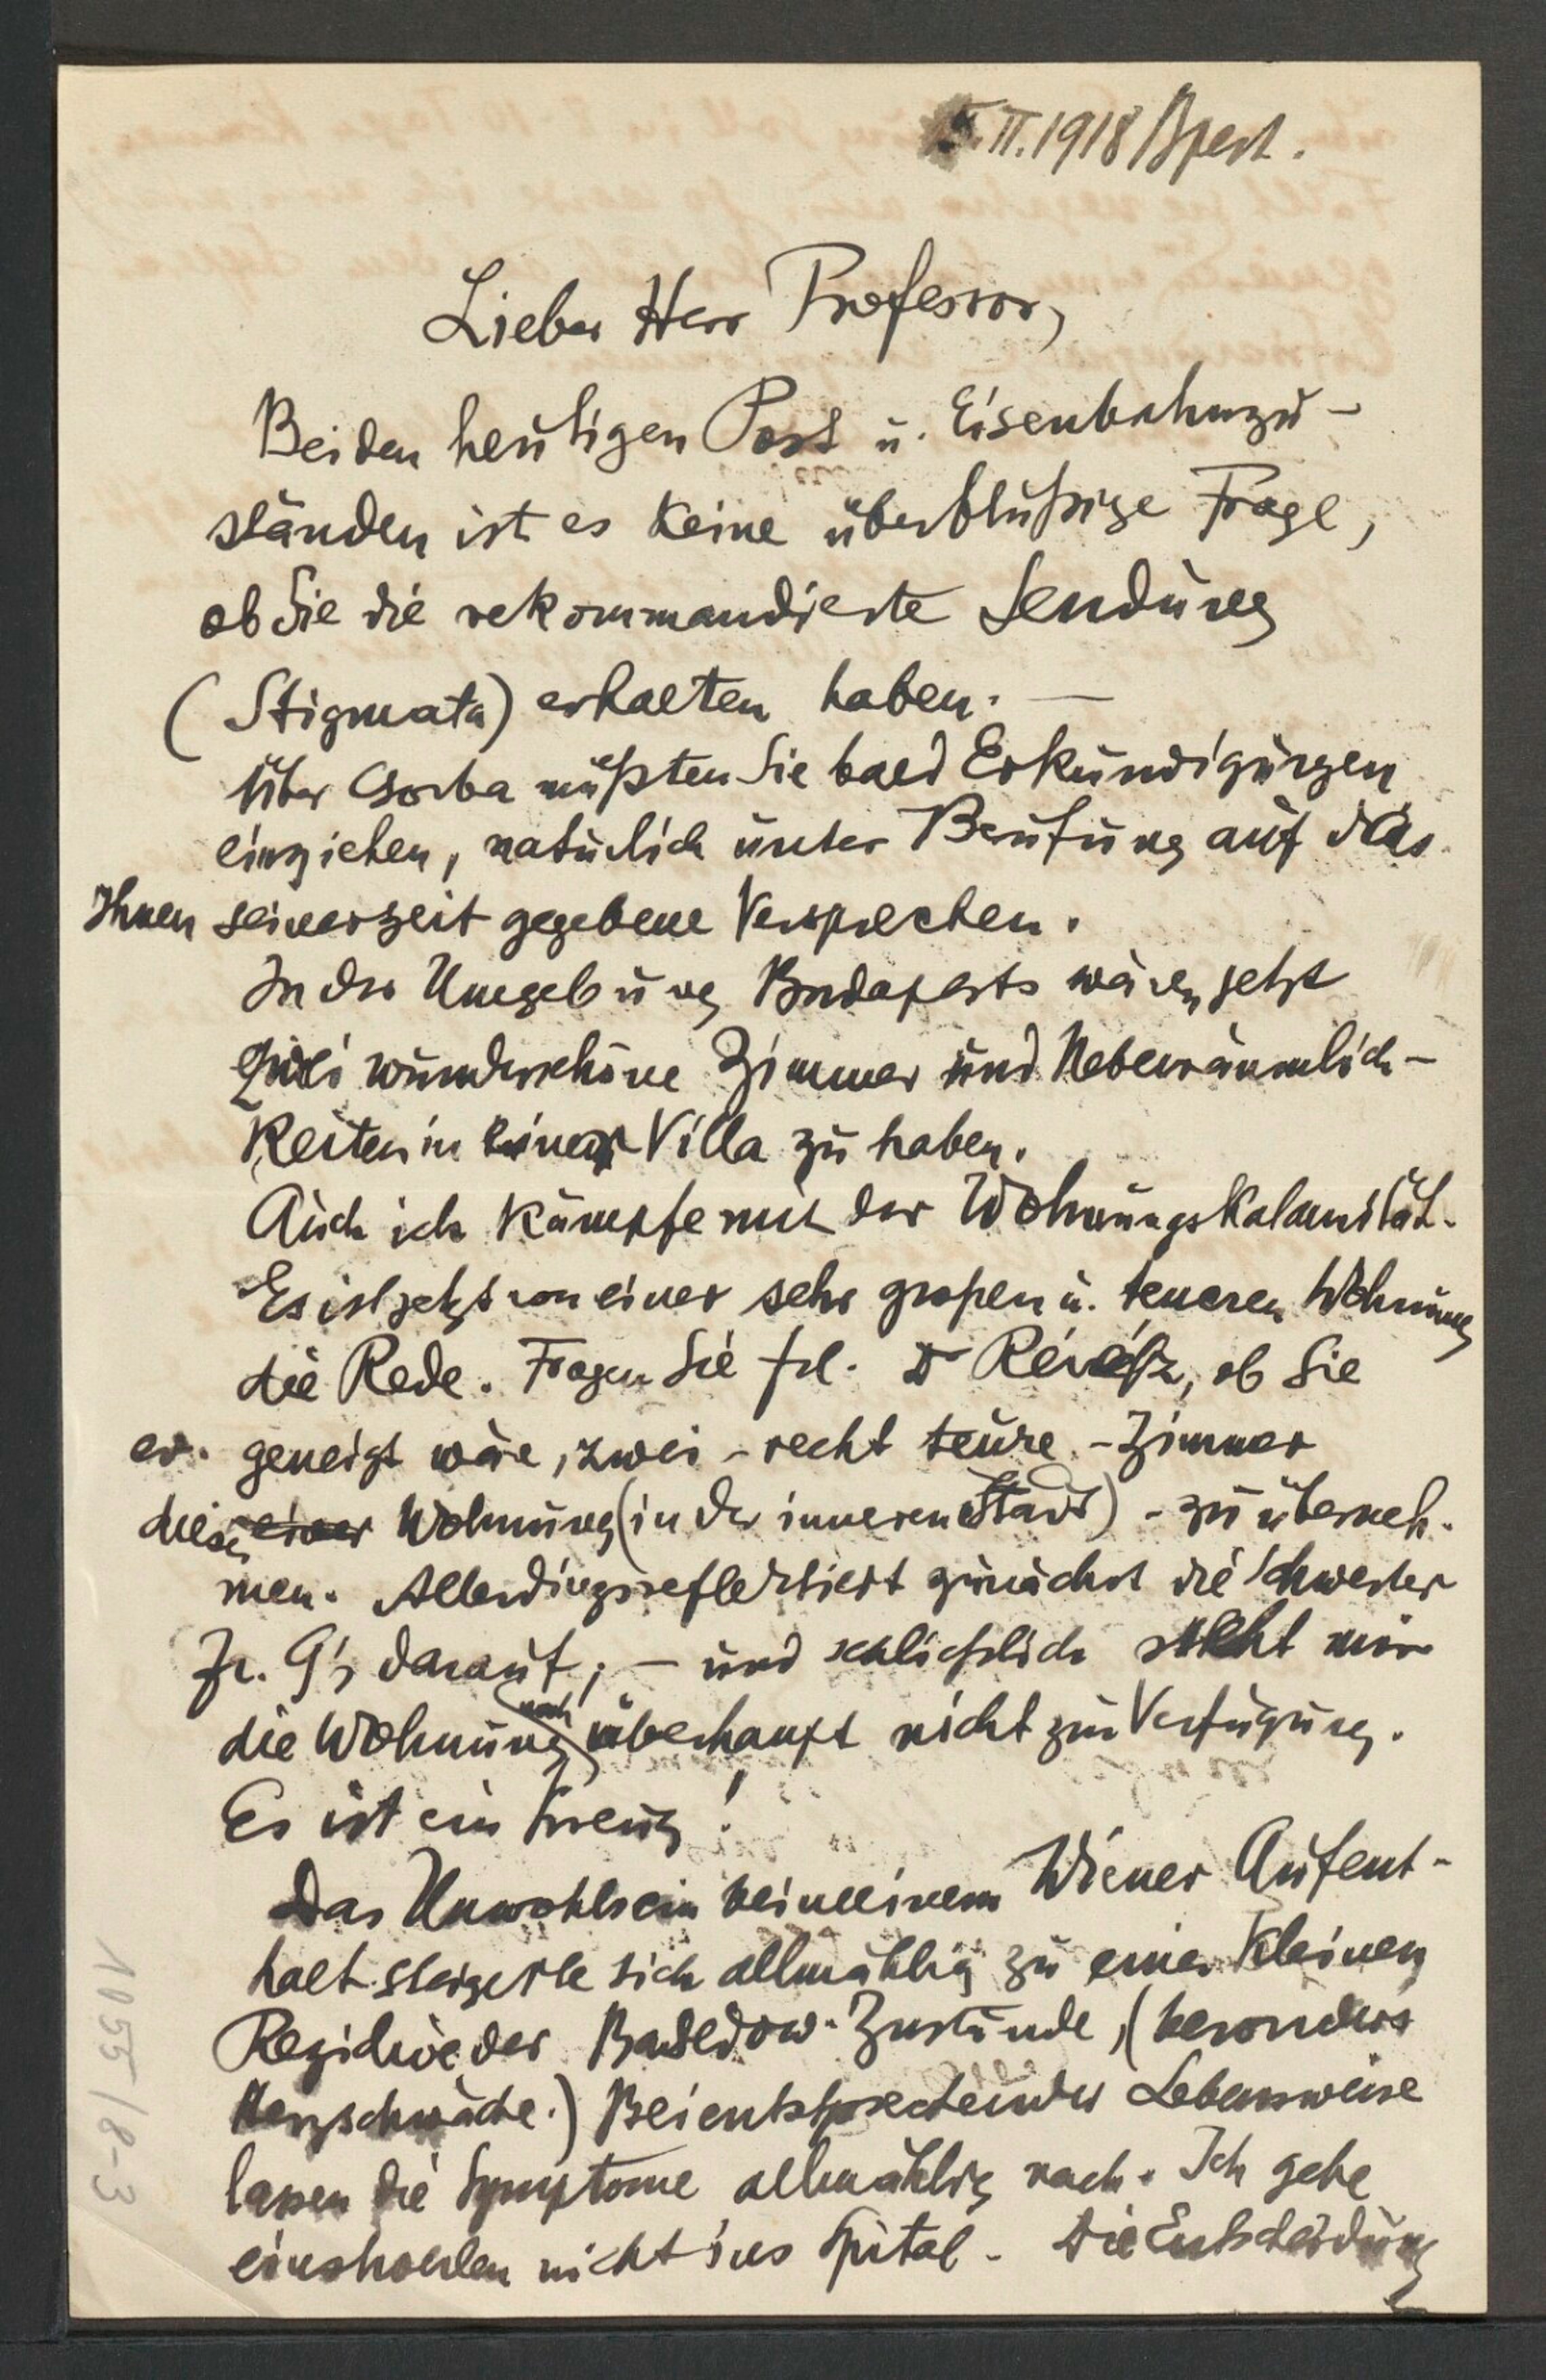 II.1918/Bpest.
Lieber Herr Professor,
Bei den heutigen Post u. Eisenbahnzu-
ständen ist es keine überflüßige Frage,
ob Sie die rekommandierte Sendung
(Stigmata) erhalten haben. —
Über Csorba müßten Sie bald Erkundigungen
einziehen, natürlich unter Berufung auf das
Ihnen seinerzeit gegebene Versprechen.
In der Umgebung Budapests wären jetzt
zwei wunderschöne Zimmer und Nebenräumlich-
keiten in einer Villa zu haben.
Auch ich kämpfe mit der Wohnungskalamität.
Es ist jetzt von einer sehr großen u. teueren Wohnung
die Rede. Fragen Sie frl. Dr Révész, ob Sie
ev. geneigt wäre, zwei - recht teure - Zimmer
dieser einer Wohnung (in der inneren Stadt) - zu überneh-
men. Allerdings reflektiert zunächst die Schwester
Fr. G's darauf; — und schließlich steht mir
die Wohnung noch überhaupt nicht zur Verfügung.
Es ist ein Kreuz!
Das Unwohlsein bei meinem Wiener Aufent-
halt steigerte sich allmählig zu einer kleinen
Rezidive der Basedow-Zustände, (besonders
Herzschwäche.) Bei entsprechender Lebensweise
lassen die Symptome allmählig nach. Ich gehe
einstweilen nicht ins Spital. Die Entscheidung
1055/8-3